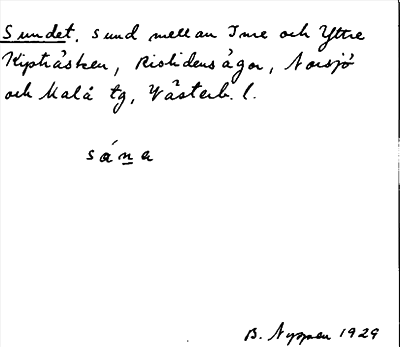 Sundet. Sund mellan Inre och Yttre
Kipträsken, Risliden ägor, Norsjö
och Malå tg, Västerb. l.
sán̲a
B. Nyman 1929